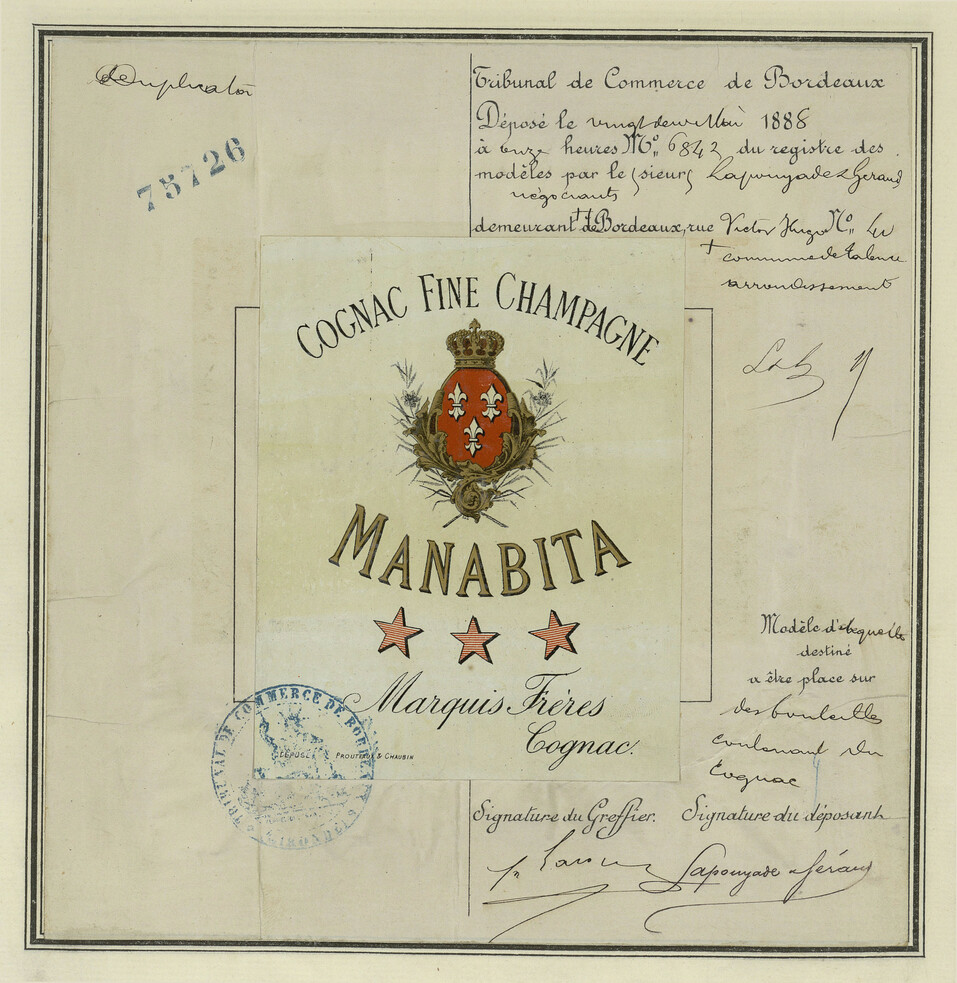 Duplicata
75726
Tribunal de Commerce de Bordeaux
Déposé le vingt deux Mai 1888
à onze heures No 6842 du registre des
modèles par le sieurs Lapouyade & Géraud
négociants
demeurant †à Bordeaux, rue Victor Hugo No
† commune de Talence
arrondissement
COGNAC FINE CHAMPAGNE
MANABITA
Marquis Frères
Cognac.
PROUTEAUX & CHAUBIN
TRIBUNAL DE COMMERCE DE BORDEAUX
GIRONDE
Modèle d'étiquette
destiné
a être place sur
des bouteilles
contenant du
Cognac
Signature du Greffier. Signature du déposant
Lapouyade & Géraud